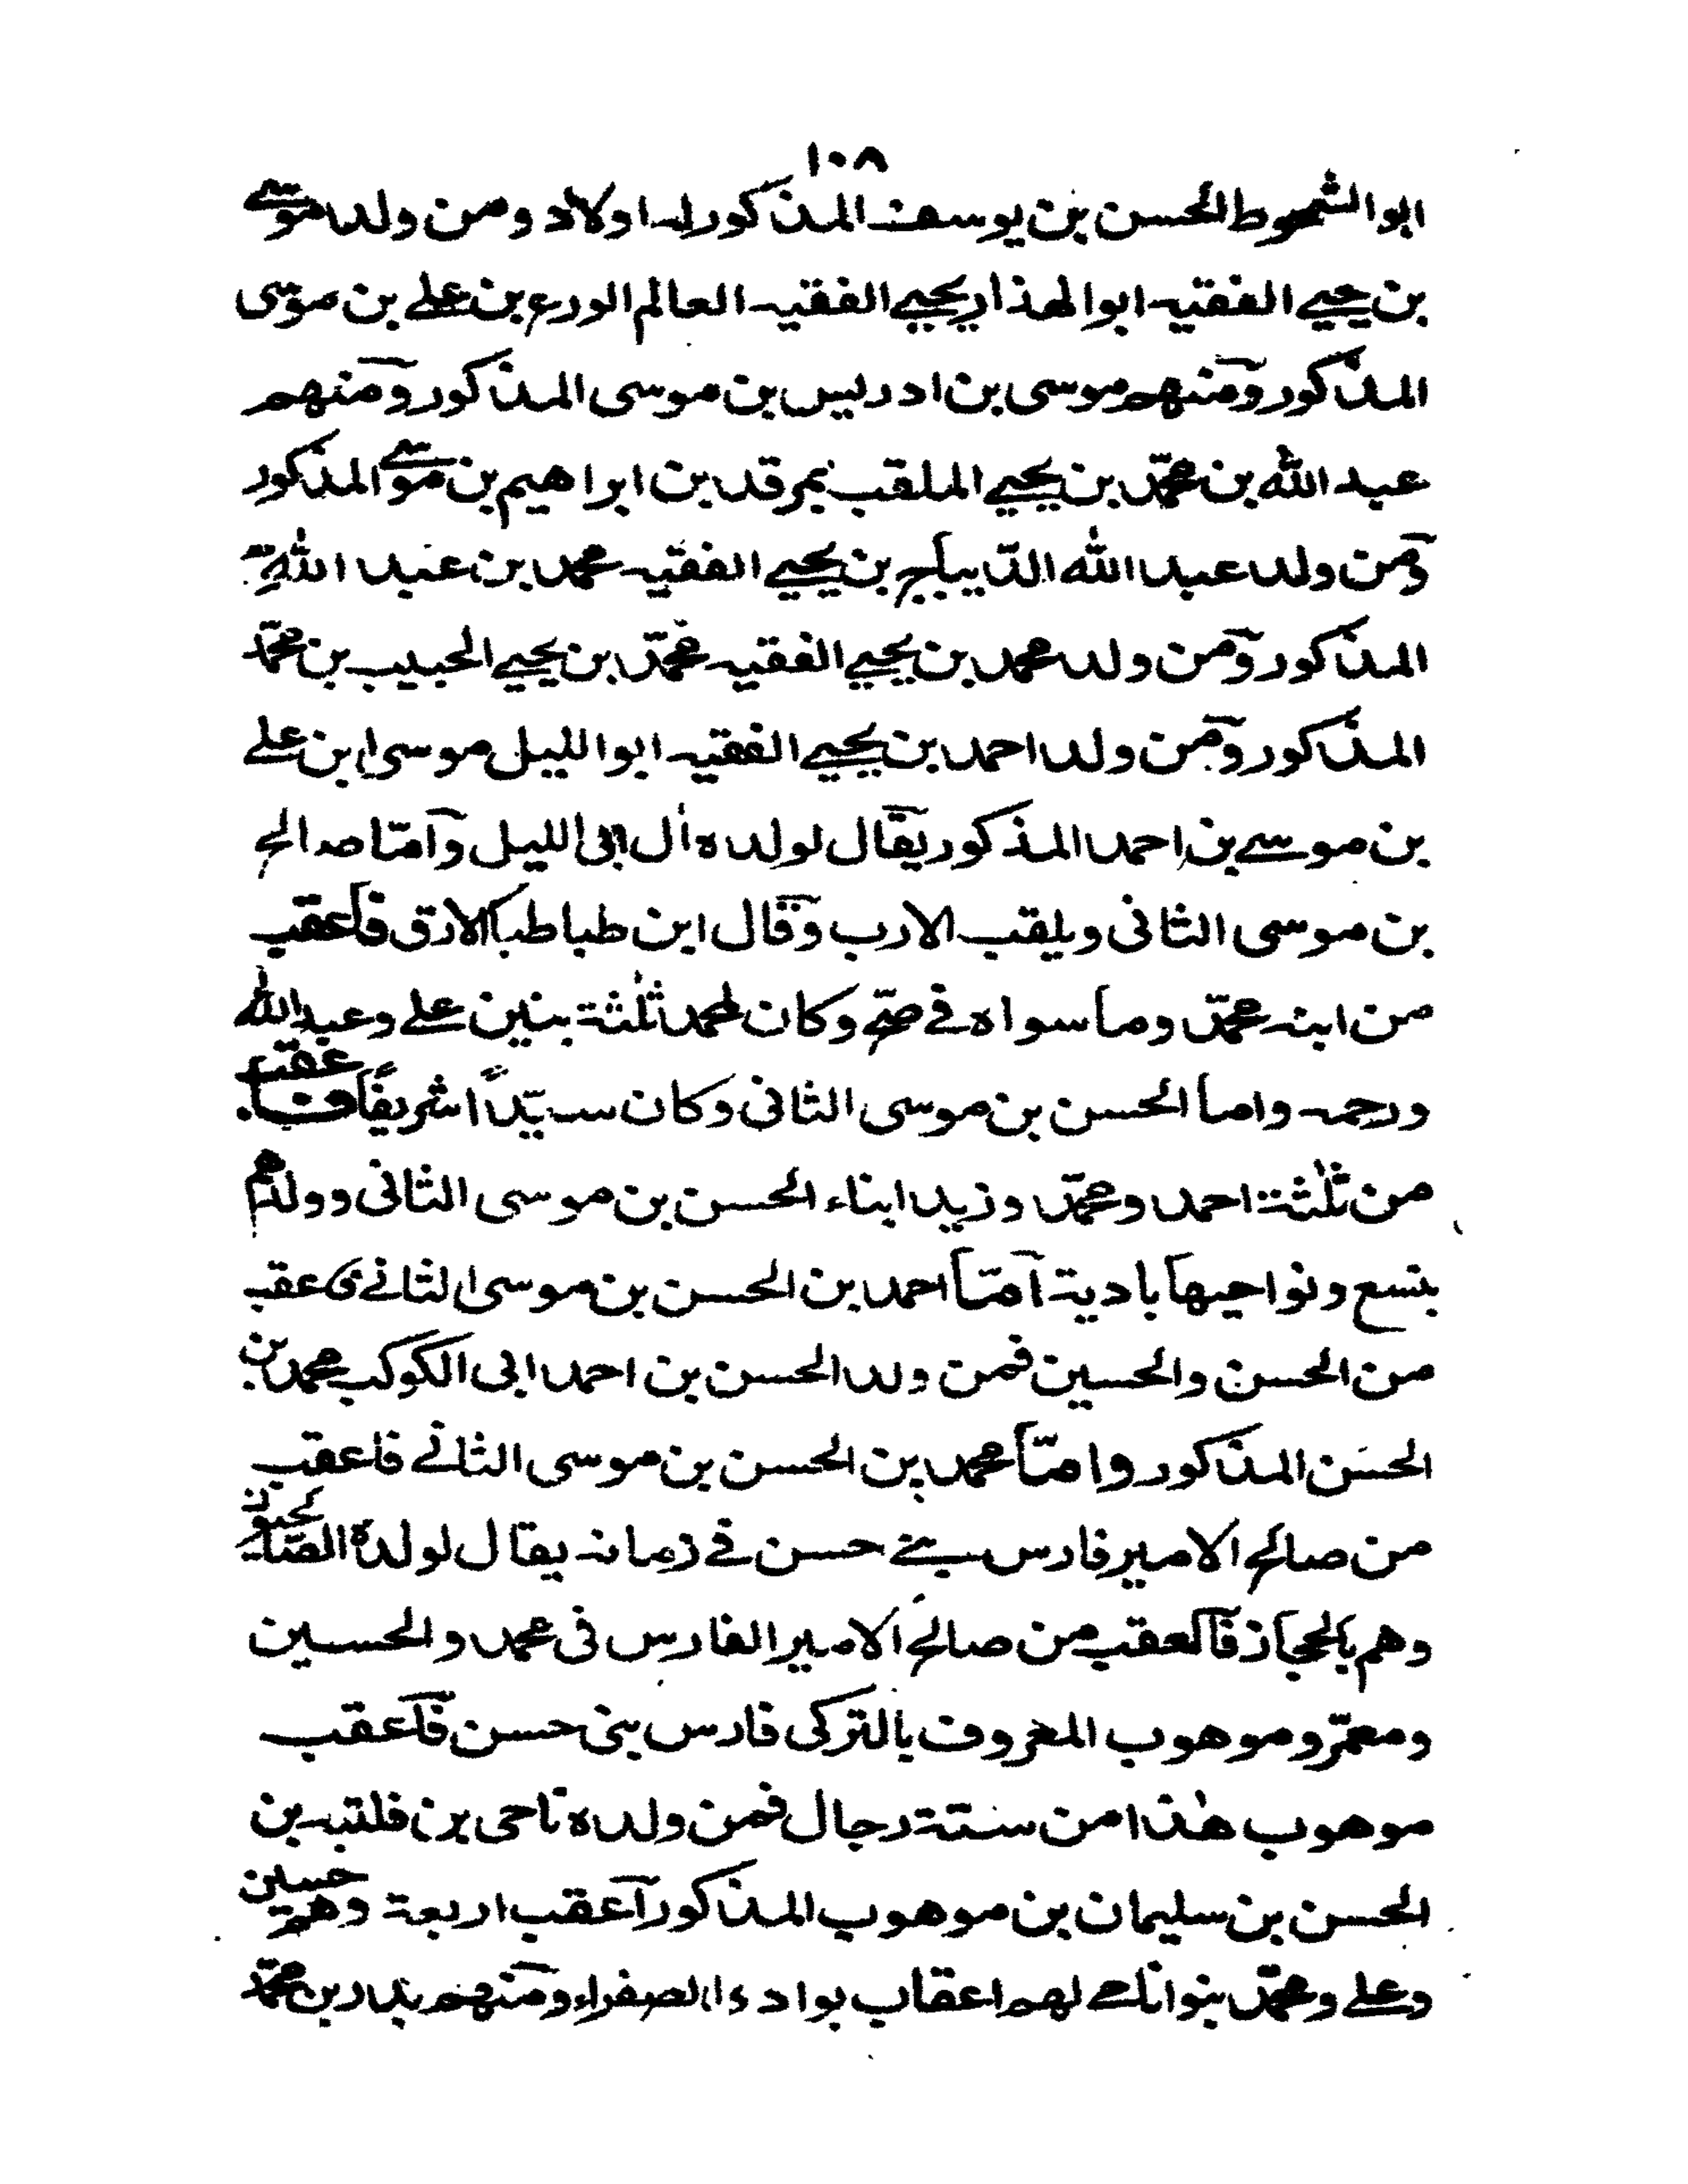 ١٠٨
ابو الشموط الحسن بن يوسف المذكور له اولاد ومن ولد موسى
بن يحيي الفقيه ابو الهذار يحيي الفقيه العالم الورع بن علے بن موسى
المذكور ومنهم موسى بن ادريس بن موسى المذكور ومنهم
عبد الله بن محمّد بن يحيي الملقب بمرقد بن ابراهيم بن موسے المذكور
ومن ولد عبد الله الدّيباج بن يحيي الفقيه محمد بن عبد الله
المذكور ومن ولد محمد بن يحيي الفقيه محمّد بن يحيي الحبيب بن محمّد
المذكور ومن ولد احمد بن يحيي الفقيه ابو الليل موسى ابن علے
بن موسے بن احمد المذكور يقال لولده اٰل ابى الليل وامّا صالح
بن موسى الثانى ويلقب الارب وقال ابن طباطبا الارق فاعقب
من ابنه محمّد وما سواه فے صحّ وكان لمحمد ثلٰثة بنين علے وعبد الله
ورحمه واما الحسن بن موسى الثانى وكان سيّدًا شريفًا فاعقب
من ثلٰثة احمد ومحمّد وزيد ابناء الحسن بن موسى الثانى وولدهم
بتسع ونواحيها بادية امّا احمد بن الحسن بن موسى الثانے فاعقب
من الحسن والحسين فمن ولد الحسن بن احمد ابى الكوكب محمد بن
الحسن المذكور وامّا محمد بن الحسن بن موسى الثانے فاعقب
من صالح الامير فارس بنے حسن فے زمانه يقال لولده الصالحيون
وهم بالحجاز فالعقب من صالح الامير الفارس فى محمد والحسين
ومعمّر وموهوب المعروف بالتركى فارس بنى حسن فاعقب
موهوب هٰذا من ستة رجال فمن ولده ناحى بن فليته بن
الحسن بن سليمان بن موهوب المذكور اعقب اربعة وهم حسين
وعلے ومحمّد بنو لهم اعقاب بواد الصفراء ومنهم بدر بن محمّد